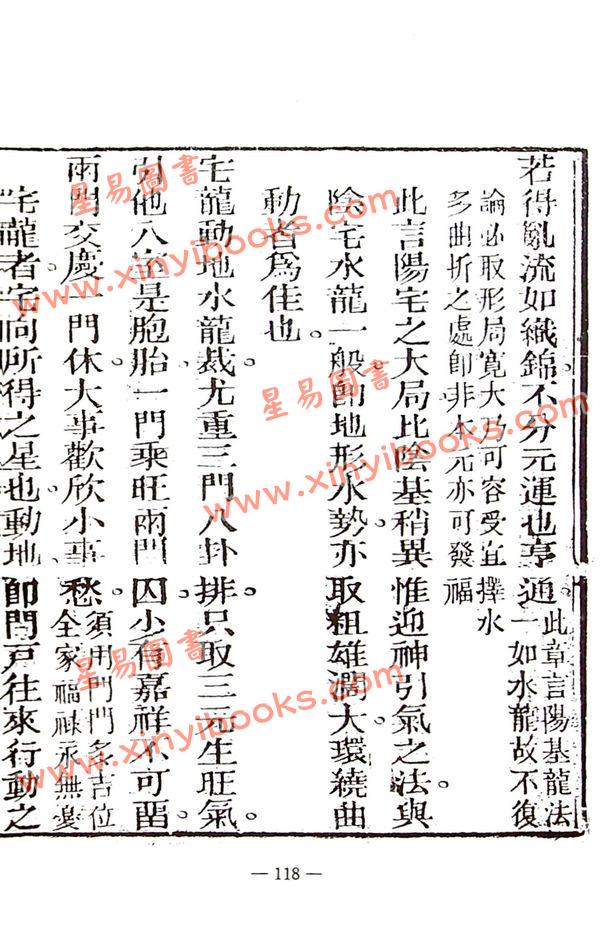 若得亂流如織錦不分元運也亨通此章言陽基龍法
一如水龍故不復
論必取形局寬大乃可容受宜擇水
多曲折之處即非本元亦可發福
此言陽宅之大局比陰基稍異惟迎神引氣之法與
陰宅水龍一般卽地形水勢亦取粗雄濶大環繞曲
動者爲佳也
宅龍動地水龍裁尤重三門八卦排只取三元生旺氣
引他入室是胞胎一門乘旺兩門囚少有嘉祥不可留
兩門交慶一門休大事歡欣小事愁須用門門多吉位
全家福祿永無憂
宅龍者宅向所得之星也動地卽門戸往來行動之
星易圖書
www.xinyibooks.com
星易圖書
www.xinyibooks.com
星易圖書
www.xinyibooks.com
星易圖書
www.xinyibooks.com
— 118 —